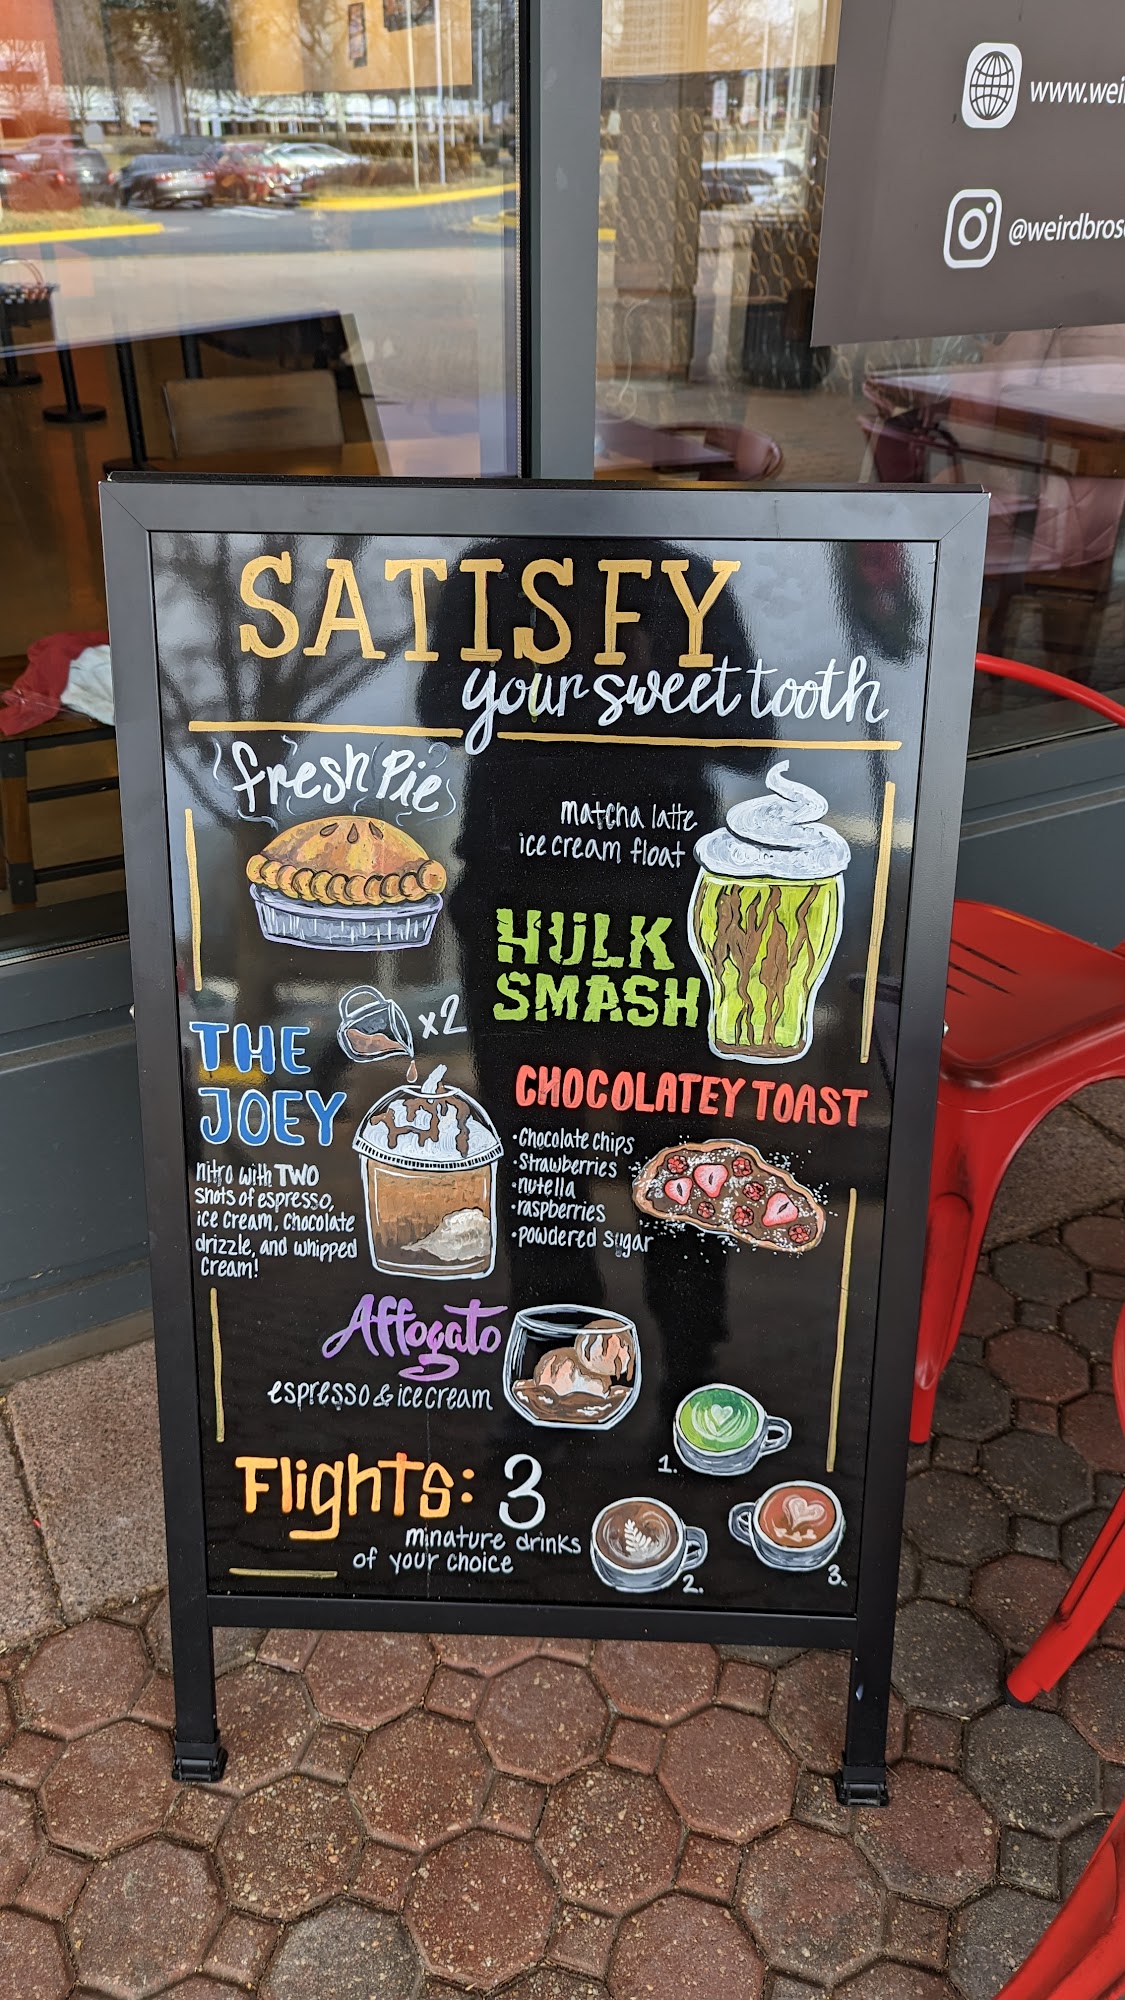 www.wei
@weirdbros
SATISFY
your sweet tooth
fresh Pie
matcha latte
ice cream float
HULK
SMASH
x2
THE
JOEY
nitro with TWO
shots of espresso,
ice cream, chocolate
drizzle, and whipped
cream!
CHOCOLATEY TOAST
•Chocolate chips
•Strawberries
•nutella
•raspberries
•powdered sugar
Affogato
espresso & ice cream
Flights: 3
minature drinks
of your choice
1.
2.
3.